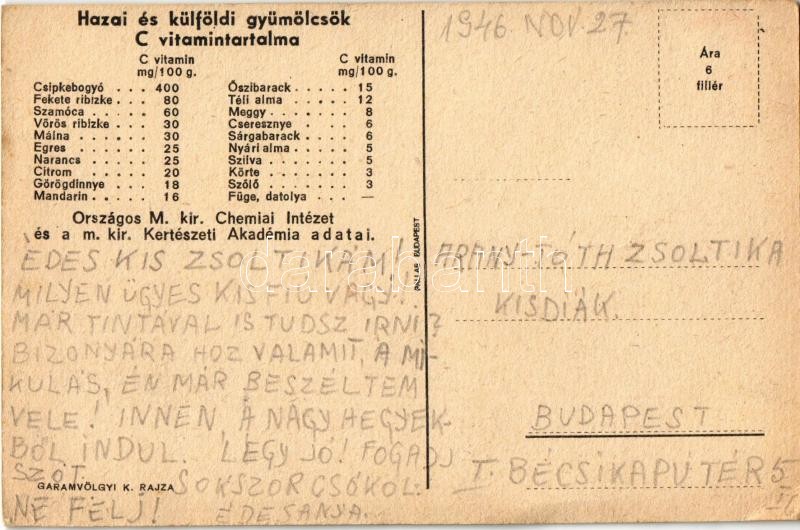 Hazai és külföldi gyümölcsök
C vitamintartalma
C vitamin
mg/100 g.
Csipkebogyó . . . 400
Fekete ribizke . . . 80
Szamóca . . . . . 60
Vörös ribizke . . . 30
Málna . . . . . . 30
Egres . . . . . . 25
Narancs . . . . . 25
Citrom . . . . . 20
Görögdinnye . . . 18
Mandarin . . . . . 16
C vitamin
mg/100 g.
Őszibarack . . . . . 15
Téli alma . . . . . 12
Meggy . . . . . . 8
Cseresznye . . . . 6
Sárgabarack . . . . 6
Nyári alma . . . . . 5
Szilva . . . . . . 5
Körte . . . . . . 3
Szőlő . . . . . . 3
Füge, datolya . . . —
Országos M. kir. Chemiai Intézet
és a m. kir. Kertészeti Akadémia adatai.
ÉDES KIS ZSOLTIKÁM!
MILYEN ÜGYES KISFIÚ VAGY!
MÁR TINTÁVAL IS TUDSZ IRNI?
BIZONYÁRA HOZ VALAMIT, A MI-
KULÁS, ÉN MÁR BESZÉLTEM
VELE! INNEN, A NAGY HEGYEK-
BŐL INDUL. LÉGY JÓ! FOGADJ
SZÓT. SOKSZOR CSÓKOL:
NE FÉLJ! ÉDESANYA.
GARAMVÖLGYI K. RAJZA
PALLAS BUDAPEST
1946. NOV. 27.
Ára
6
fillér
ARANY-TÓTH ZSOLTIKA
KISDIÁK.
BUDAPEST
I. BÉCSIKAPU TÉR 5
darabanth